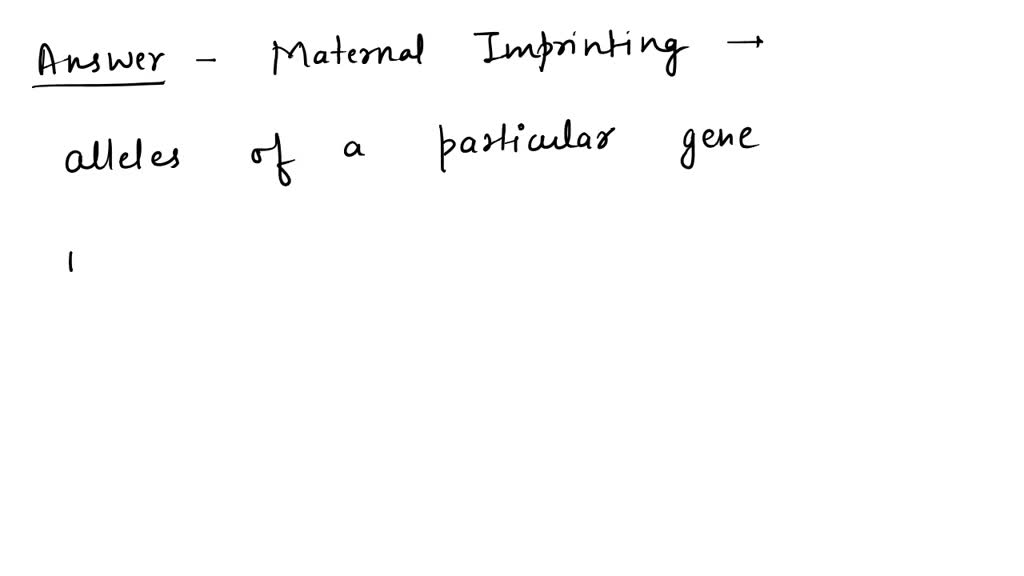 Answer - Maternal Imprinting →
alleles of a particular gene